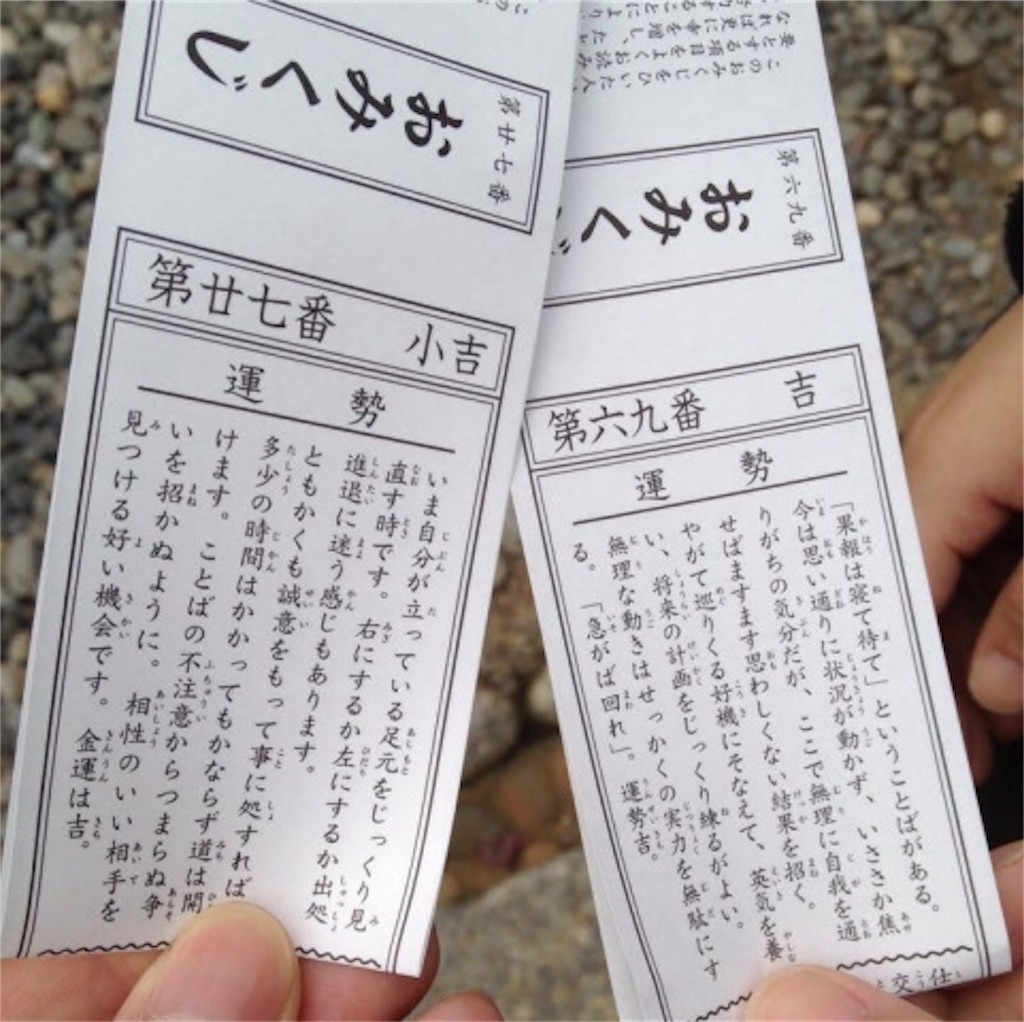 第廿七番
おみくじ
第廿七番 小吉
運勢
いま自分が立っている足元をじっくり見
直す時です。右にするか左にするか出処
進退に迷う感じもあります。
ともかくも誠意をもって事に処すれば
多少の時間はかかってもかならず道は開
けます。ことばの不注意からつまらぬ争
いを招かぬように。相性のいい相手を
見つける好い機会です。金運は吉。
このおみくじをひいた人
要とする項目をよくお読み
なれば更に幸を増し、た
努力することにより
第六九番
おみくじ
第六九番 吉
運勢
「果報は寝て待て」ということばがある。
今は思い通りに状況が動かず、いささか焦
りがちの気分だが、ここで無理に自我を通
せばますます思わしくない結果を招く。
やがて巡りくる好機にそなえて、英気を養
い、将来の計画をじっくり練るがよい。
無理な動きはせっかくの実力を無駄にす
る。「急がば回れ」。運勢吉。
仕
交
と